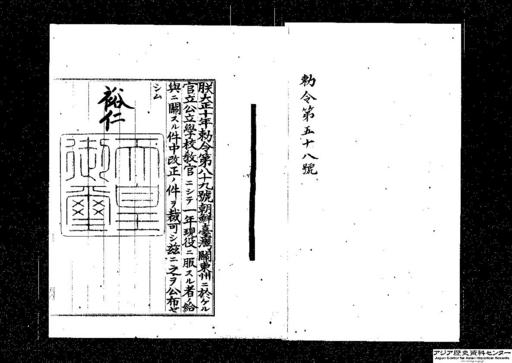 勅令第五十八號
朕大正十年勅令第八十九號朝鮮、臺灣、關東州ニ於ケル
官立公立學校敎官ニシテ一年現役ニ服スル者ノ給
與ニ關スル件中改正ノ件ヲ裁可シ茲ニ之ヲ公布セ
シム
裕仁
天皇御璽
アジア歴史資料センター
Japan Center for Asian Historical Records